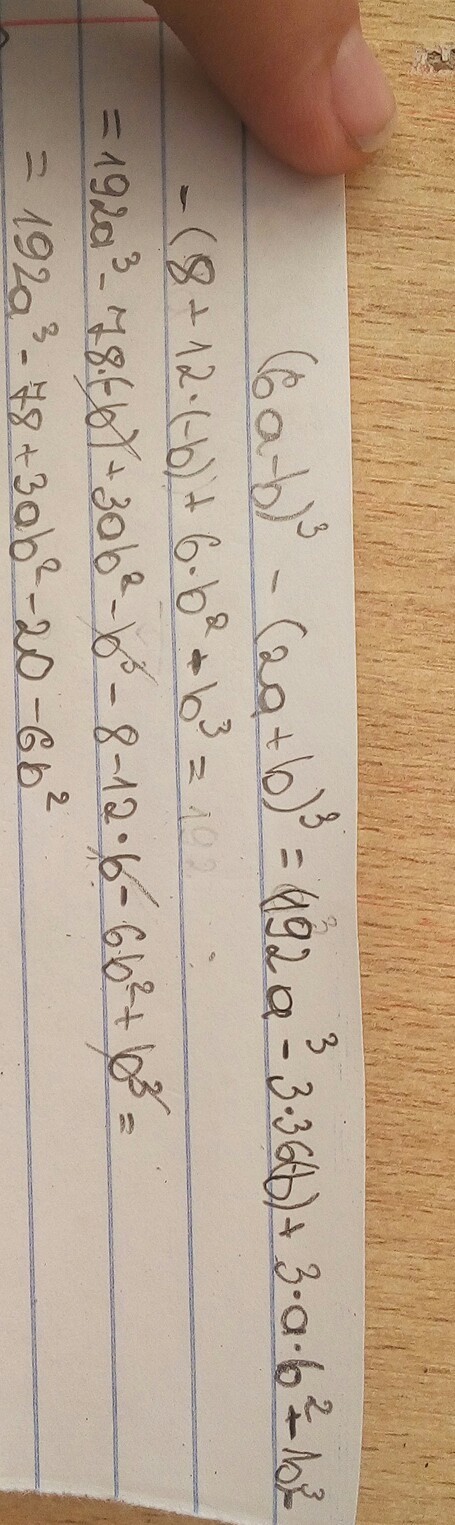 (6a-b)³ - (2a+b)³ = 192a³ - 3·36(b) + 3·a·b² - b³
- (8 + 12·(-b) + 6·b² + b³ = 192
= 192a³ - 78·(-b) + 3ab² - b³ - 8 - 12·b - 6b² + b³ =
= 192a³ - 78 + 3ab² - 20 - 6b²